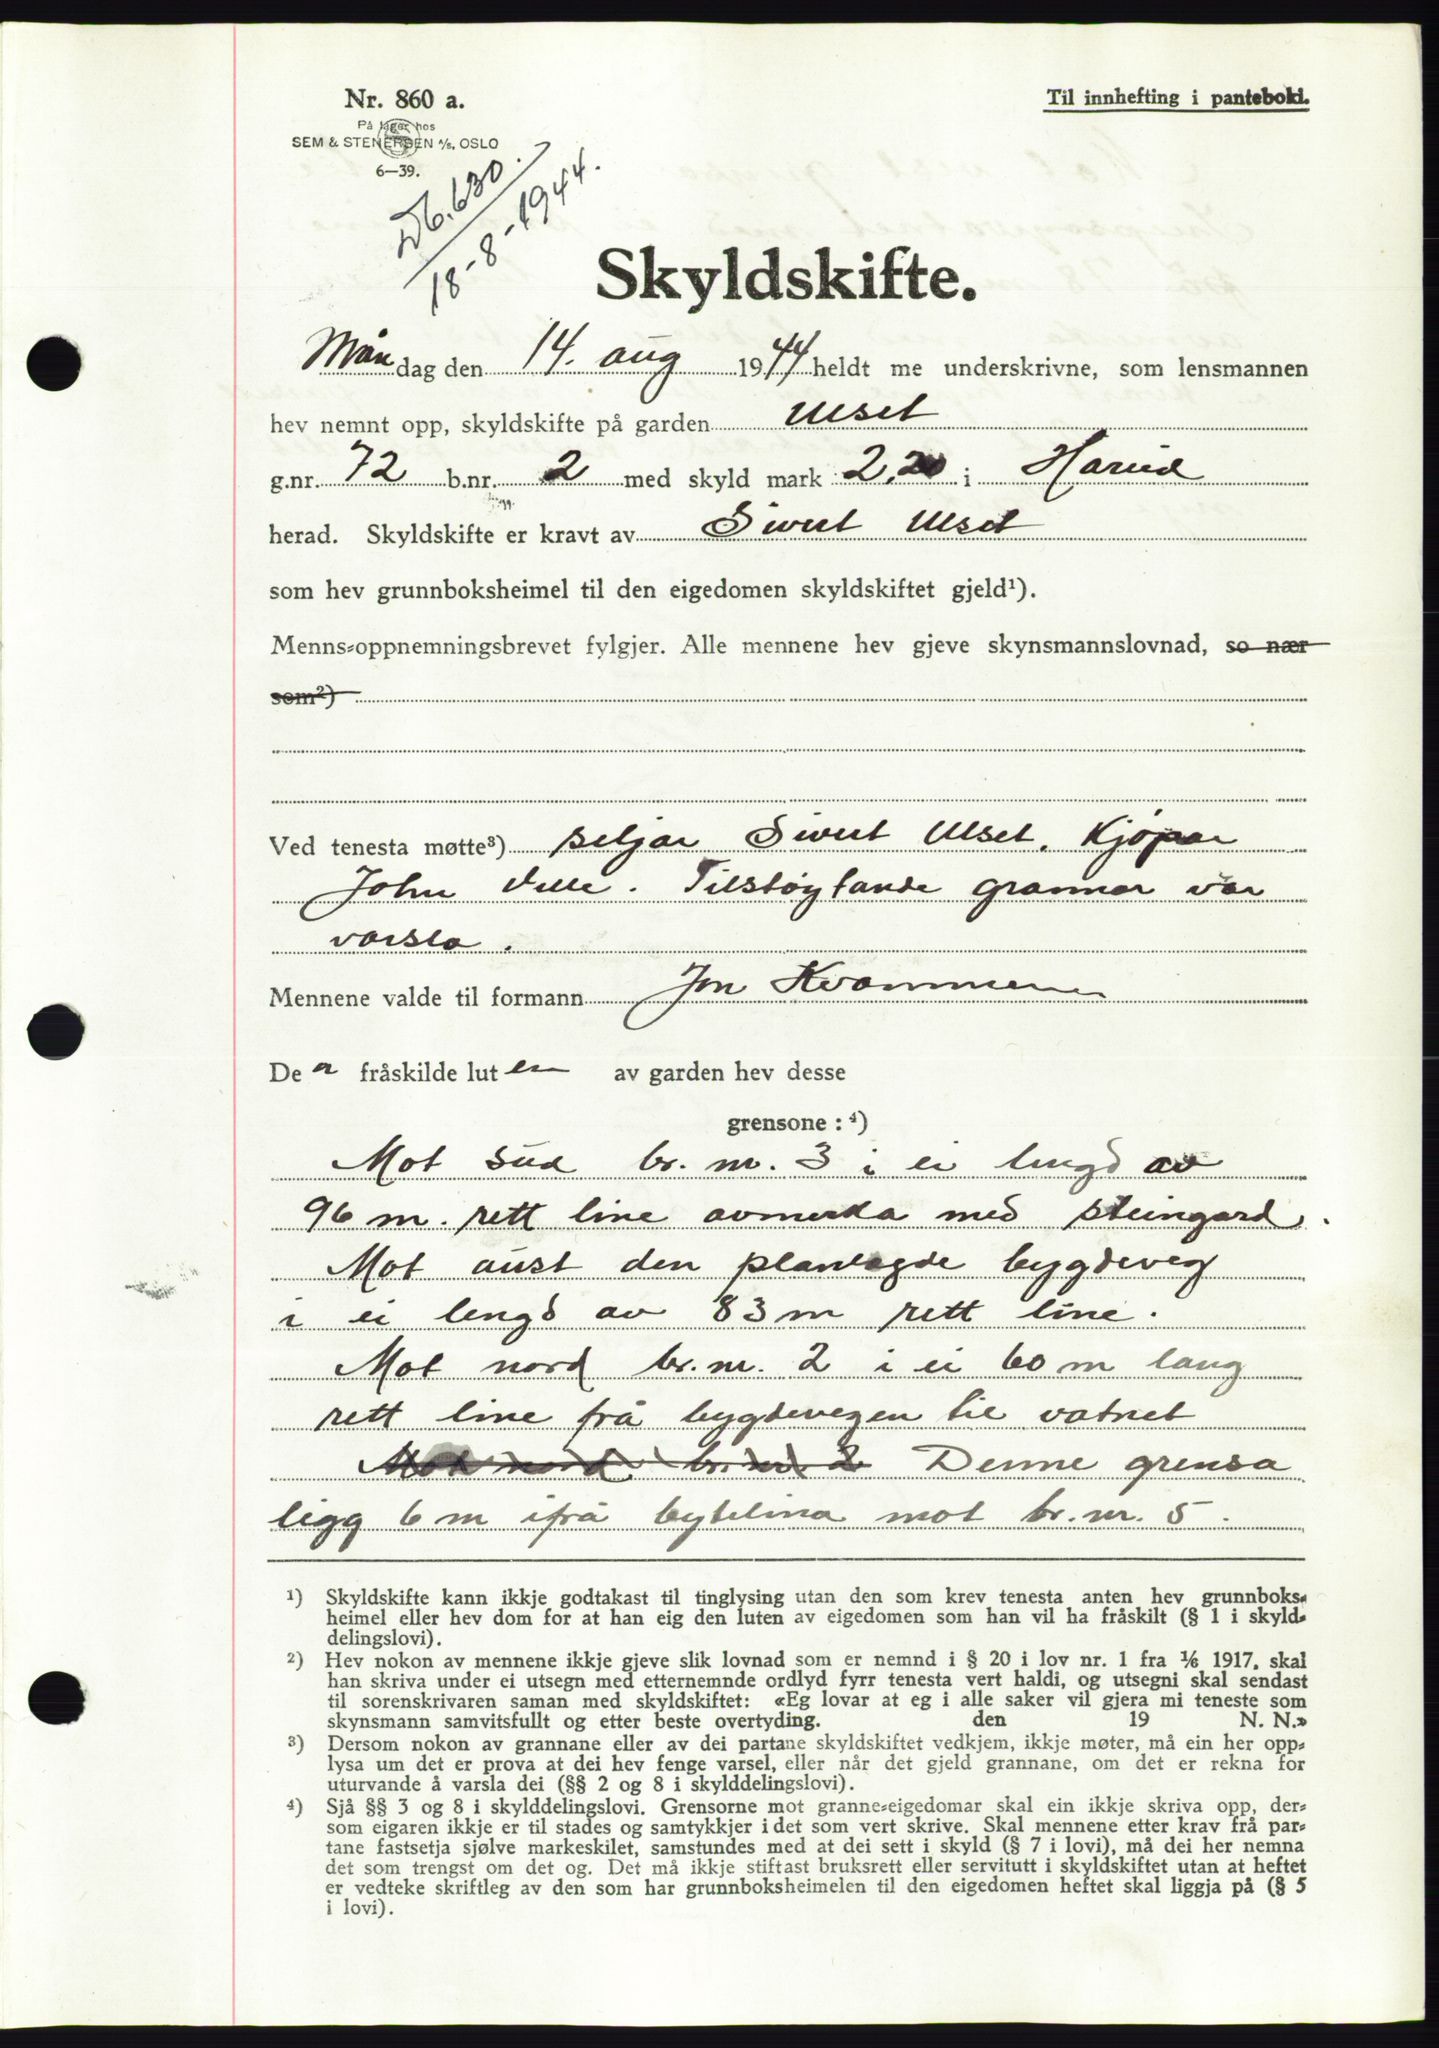 Nr. 860 a.
Til innhefting i panteboki.
På lager hos
SEM & STENERSEN A/S, OSLO
6—39.
Db. 630.
18-8-1944.
Skyldskifte.
Mån dag den 14. aug 1944 heldt me underskrivne, som lensmannen
hev nemnt opp, skyldskifte på garden Ulset
g.nr. 72 b.nr. 2 med skyld mark 2,20 i Hareid
herad. Skyldskifte er kravt av Sivert Ulset
som hev grunnboksheimel til den eigedomen skyldskiftet gjeld¹).
Menns-oppnemningsbrevet fylgjer. Alle mennene hev gjeve skynsmannslovnad, so nær
som²)
Ved tenesta møtte³) seljar Sivert Ulset. Kjøpar
John . Tilstøytande grannar var
varsla.
Mennene valde til formann Jon Kvammen
De n fråskilde lut en av garden hev desse
grensone : ⁴)
Mot sud br. nr. 3 i ei lengd av
96 m. rett line avmerka med steingard.
Mot aust den planlagde bygdeveg
i ei lengd av 83 m rett line.
Mot nord br. nr. 2 i ei 60 m lang
rett line frå bygdevegen til vatnet
Mot nord br. nr. 2 Denne grensa
ligg 6 m ifrå bytelina mot br. nr. 5.
¹) Skyldskifte kann ikkje godtakast til tinglysing utan den som krev tenesta anten hev grunnboks-
heimel eller hev dom for at han eig den luten av eigedomen som han vil ha fråskilt (§ 1 i skyld-
delingslovi).
²) Hev nokon av mennene ikkje gjeve slik lovnad som er nemnd i § 20 i lov nr. 1 fra 1/6 1917, skal
han skriva under ei utsegn med etternemnde ordlyd fyrr tenesta vert haldi, og utsegni skal sendast
til sorenskrivaren saman med skyldskiftet: «Eg lovar at eg i alle saker vil gjera mi teneste som
skynsmann samvitsfullt og etter beste overtyding. den 19 N. N.»
³) Dersom nokon av grannane eller av dei partane skyldskiftet vedkjem, ikkje møter, må ein her opp-
lysa um det er prova at dei hev fenge varsel, eller når det gjeld grannane, om det er rekna for
uturvande å varsla dei (§§ 2 og 8 i skylddelingslovi).
⁴) Sjå §§ 3 og 8 i skylddelingslovi. Grensorne mot granne-eigedomar skal ein ikkje skriva opp, der-
som eigaren ikkje er til stades og samtykkjer i det som vert skrive. Skal mennene etter krav frå par-
tane fastsetja sjølve markeskilet, samstundes med at dei sett i skyld (§ 7 i lovi), må dei her nemna
det som trengst om det og. Det må ikkje stiftast bruksrett eller servitutt i skyldskiftet utan at heftet
er vedteke skriftleg av den som har grunnboksheimelen til den eigedomen heftet skal liggja på (§ 5
i lovi).